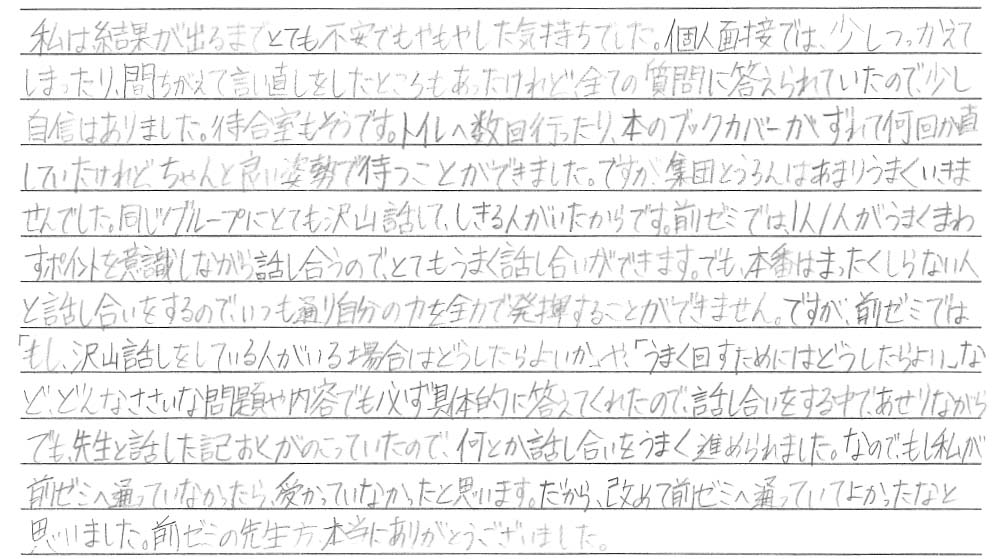 私は結果が出るまでとても不安でもやもやした気持ちでした。個人面接では、少しつっかえて
しまったり、間ちがえて言い直しをしたところもあったけれど、全ての質問に答えられていたので、少し
自信はありました。待合室もそうです。トイレへ数回行ったり、本のブックカバーがずれて何回か直
していたけれど、ちゃんと良い姿勢で待つことができました。ですが、集団とうろんはあまりうまくいきま
せんでした。同じグループにとても沢山話して、しきる人がいたからです。前ゼミでは、1人1人がうまくまわ
すポイントを意識しながら話し合うので、とてもうまく話し合いができます。でも、本番はまったくしらない人
と話し合いをするので、いつも通り自分の力を全力で発揮することができません。ですが、前ゼミでは
「もし、沢山話しをしている人がいる場合はどうしたらよいか」や、「うまく回すためにはどうしたらよい」な
ど、どんなささいな問題や内容でも必ず具体的に答えてくれたので、話し合いをする中で、あせりながら
でも、先生と話した記おくがのこっていたので、何とか話し合いをうまく進められました。なので、もし私が
前ゼミへ通っていなかったら、受かっていなかったと思います。だから、改めて前ゼミへ通っていてよかったなと
思いました。前ゼミの先生方、本当にありがとうございました。